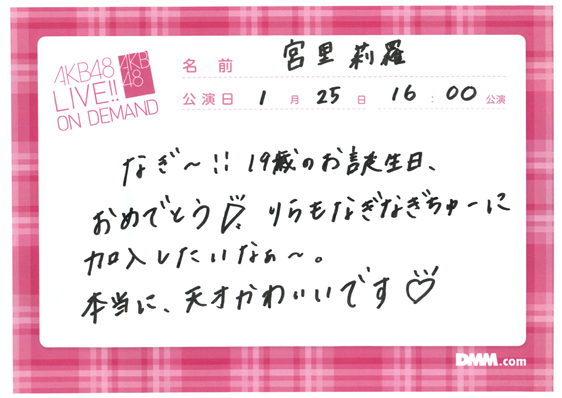 AKB48
LIVE!!
ON DEMAND
AKB
48
名前 宮里莉羅
公演日 1月25日 16:00公演
なぎ〜!! 19歳のお誕生日、
おめでとう♡ りらもなぎなぎちゅーに
加入したいなぁ〜。
本当に、天才かわいいです♡
DMM.com